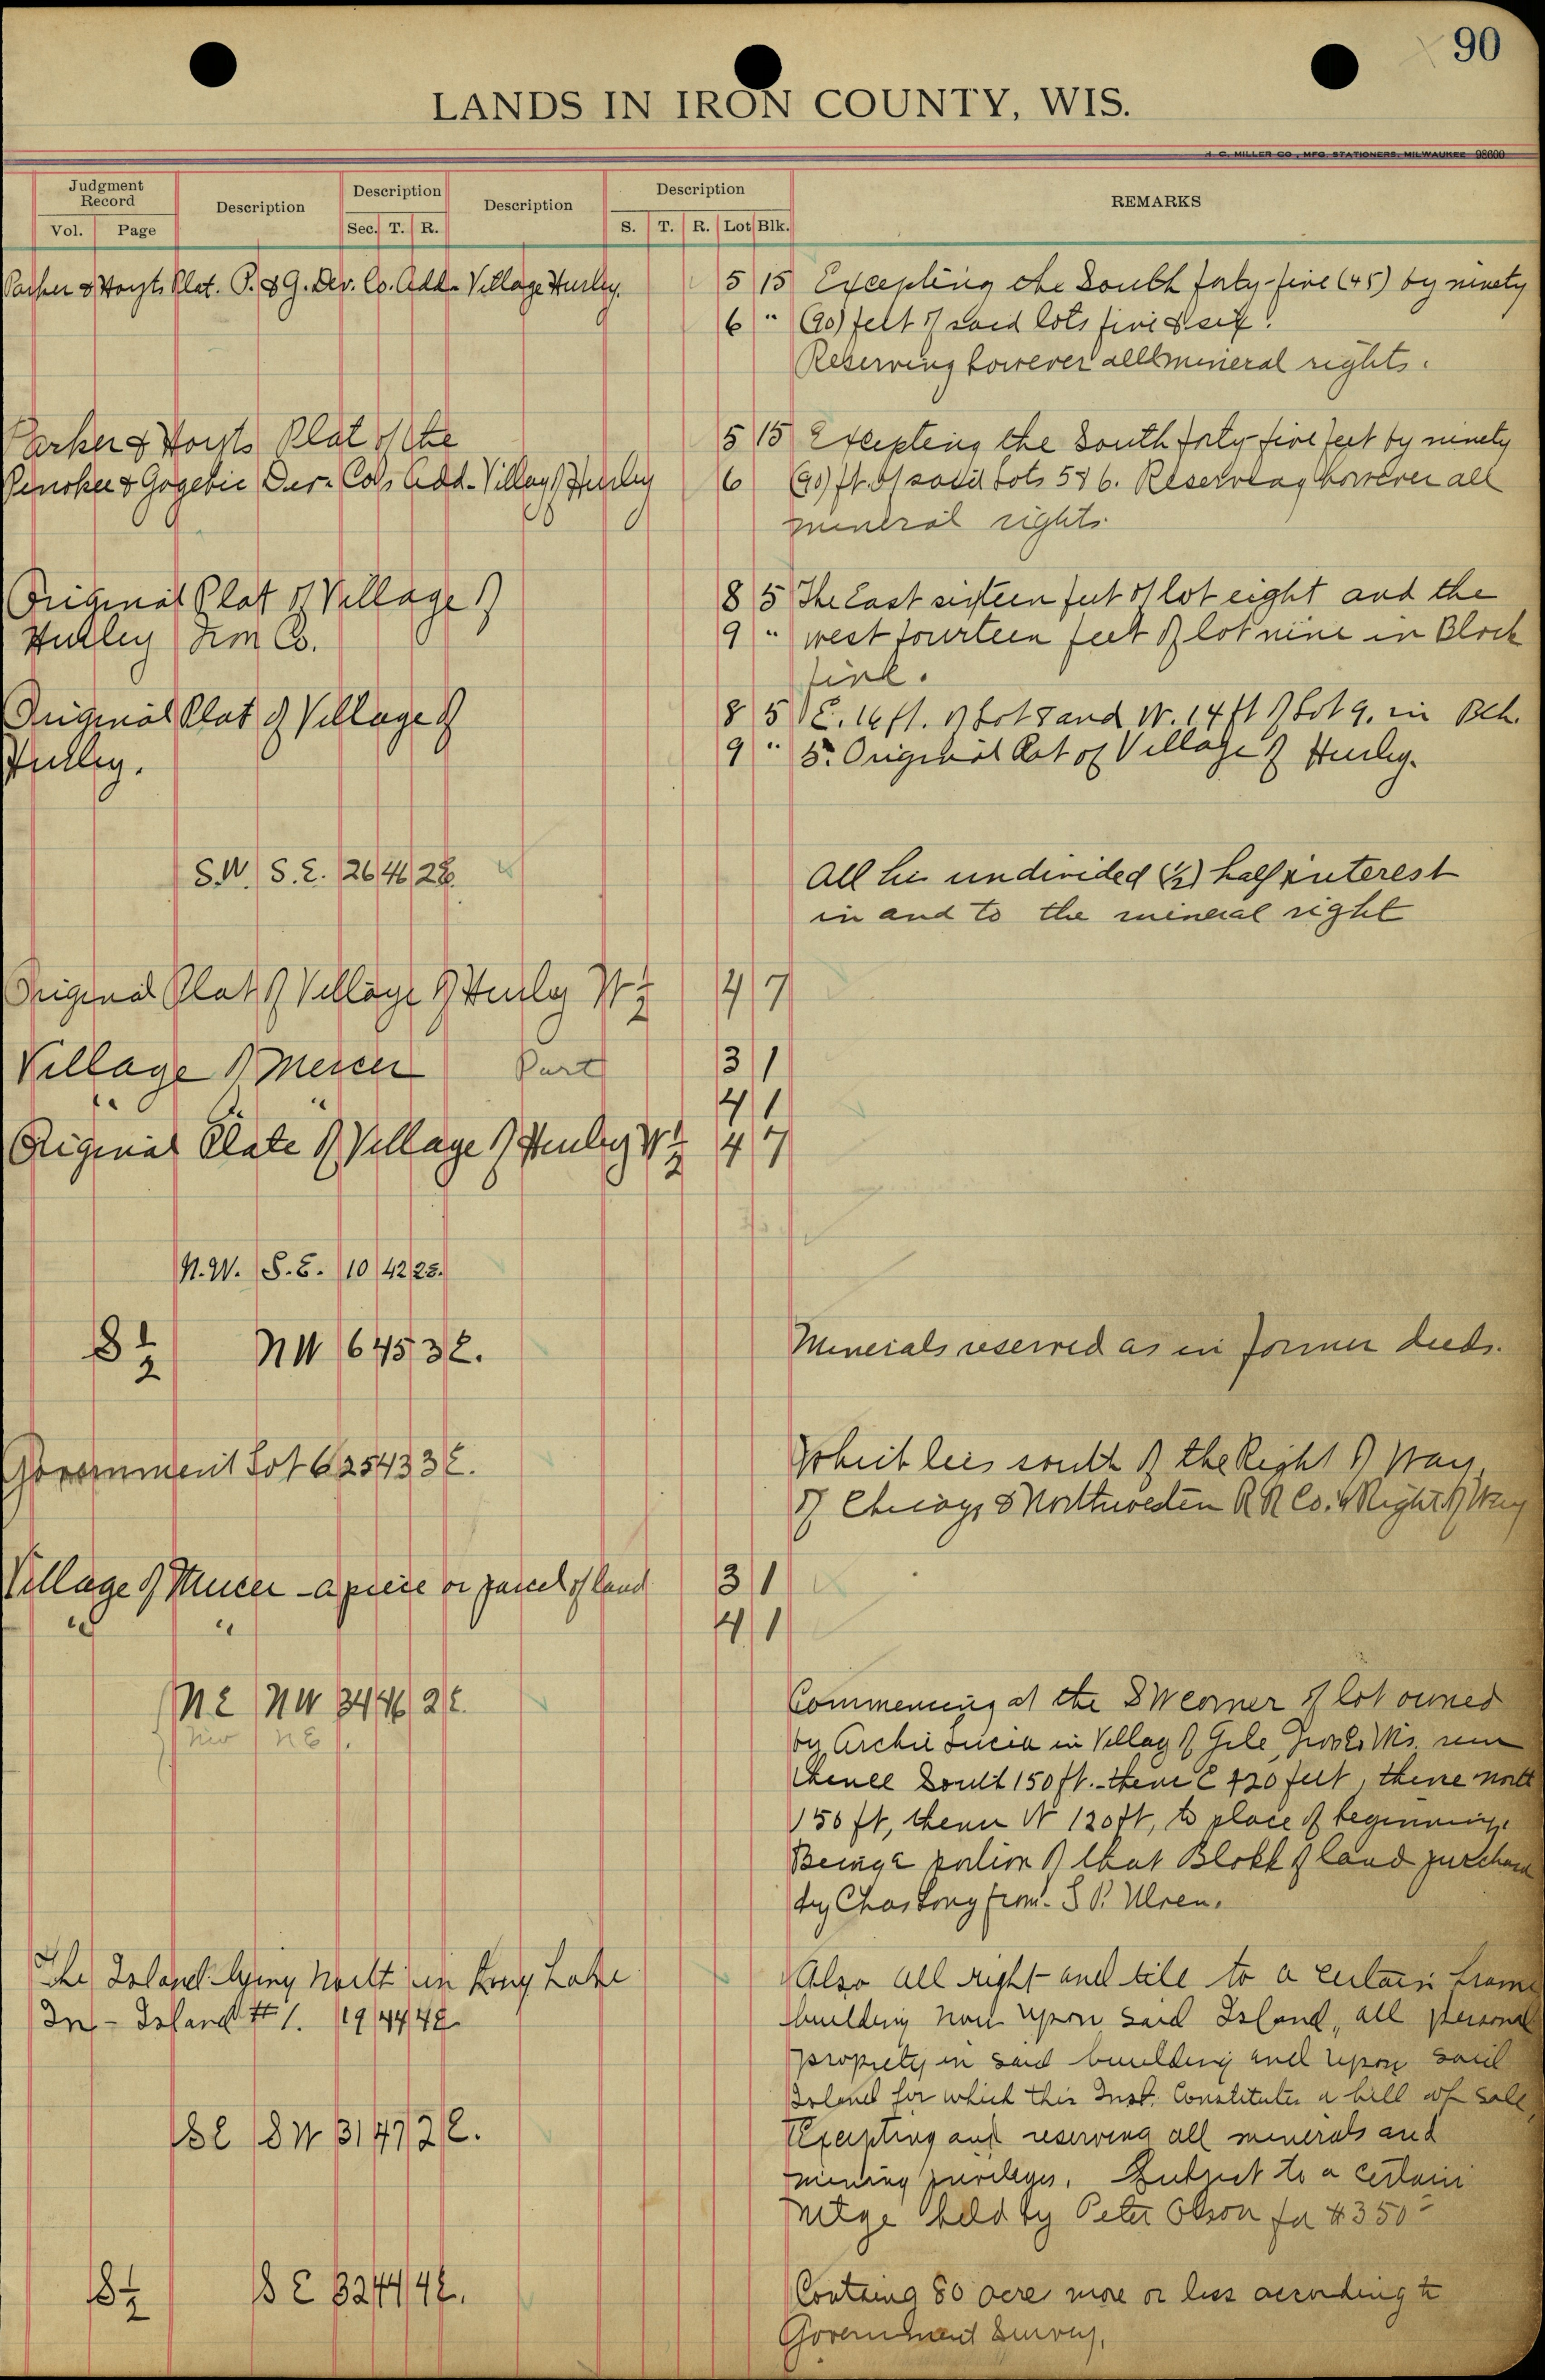 90
LANDS IN IRON COUNTY, WIS.
H. C. MILLER CO., MFG. STATIONERS, MILWAUKEE 98600
Judgment Record Description Description Description Description REMARKS
Vol. Page Sec. T. R. S. T. R. Lot Blk.
Parker & Hoyts Plat. P. & G. Dev. Co. Add. Village Hurley. 5 15 Excepting the South forty-five (45) by ninety
6 " (90) feet of said lots five & six.
Reserving however all mineral rights.
Parker & Hoyts Plat of the 5 15 Excepting the South forty-five feet by ninety
Penokee & Gogebic Dev. Co's Add. Village Hurley 6 (90) ft. of said Lots 5 & 6. Reserving however all
mineral rights.
Original Plat of Village of 8 5 The East sixteen feet of lot eight and the
Hurley Iron Co. 9 " west fourteen feet of lot nine in Block
five.
Original Plat of Village of 8 5 E. 16 ft. of Lot 8 and W. 14 ft of Lot 9. in Blk.
Hurley. 9 " 5. Original Plat of Village of Hurley.
S.W. S.E. 26 46 2E. All his undivided (½) half interest
in and to the mineral right
Original Plat of Village of Hurley W ½ 4 7
Village of Mercer Part 3 1
" " 4 1
Original Plate of Village of Hurley W ½ 4 7
N.W. S.E. 10 42 2E.
S ½ NW 6 45 3 E. Minerals reserved as in former deeds.
Government Lot 6 25 43 3 E. Which lies south of the Right of Way
of Chicago & Northwestern R R Co. Right of Way
Village of Mercer - a piece or parcel of land 3 1
" " 4 1
NE NW 34 46 2 E. Commencing at the SW corner of lot owned
NW NE by Archie in Village of Gile, Iron Co. Wis. run
thence South 150 ft. thence E 120 feet, thence north
150 ft, thence W 120 ft, to place of beginning.
Being a portion of that Block of land purchased
by Chas Long from S. P. Uren.
The Island lying North in Long Lake Also all right and title to a certain frame
In - Island # 1. 19 44 4E building now upon said Island, all personal
property in said building and upon said
Island for which this Inst. Constitutes a bill of sale,
SE SW 31 47 2 E. Excepting and reserving all minerals and
mining privileges. Subject to a certain
mtge held by Peter Olson for $350
S ½ SE 32 44 4E. Containg 80 acre more or less according to
Government Survey.